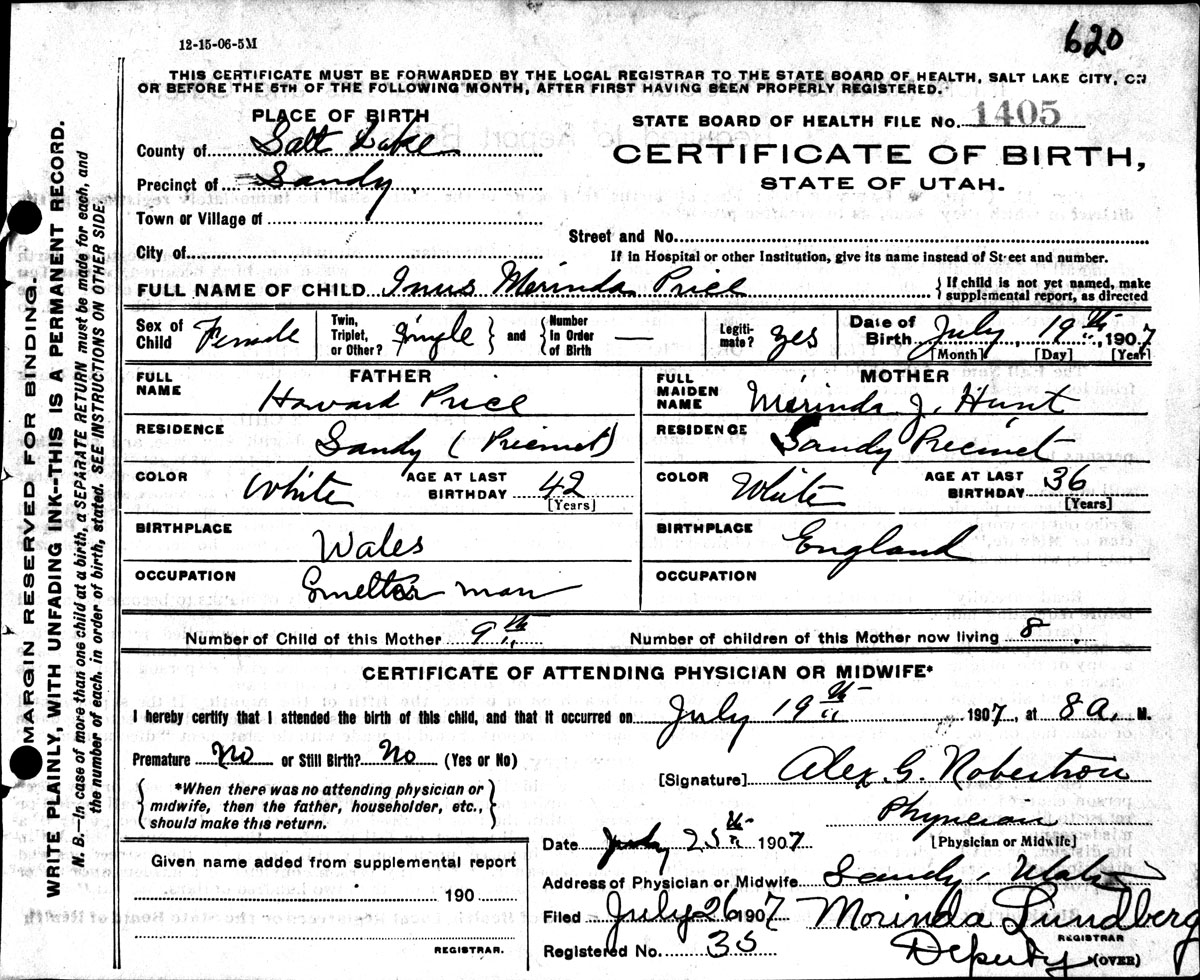 620
12-15-06-5M
THIS CERTIFICATE MUST BE FORWARDED BY THE LOCAL REGISTRAR TO THE STATE BOARD OF HEALTH, SALT LAKE CITY, ON
OR BEFORE THE 5TH OF THE FOLLOWING MONTH, AFTER FIRST HAVING BEEN PROPERLY REGISTERED.
PLACE OF BIRTH
STATE BOARD OF HEALTH FILE No. 1405
County of Salt Lake
CERTIFICATE OF BIRTH,
Precinct of Sandy
STATE OF UTAH.
Town or Village of
Street and No.
City of
If in Hospital or other Institution, give its name instead of Street and number.
FULL NAME OF CHILD Inus Merinda Price { If child is not yet named, make
supplemental report, as directed
Sex of Child Female Twin, Triplet, or Other? Single } and { Number In Order of Birth — Legiti- mate? yes Date of Birth July 19th, 1907
[Month] [Day] [Year]
FATHER
FULL NAME Howard Price
RESIDENCE Sandy (Precinct)
COLOR White AGE AT LAST BIRTHDAY 42
[Years]
BIRTHPLACE Wales
OCCUPATION Smelter man
MOTHER
FULL MAIDEN NAME Merinda J. Hunt
RESIDENCE Sandy Precinct
COLOR White AGE AT LAST BIRTHDAY 36
[Years]
BIRTHPLACE England
OCCUPATION
Number of Child of this Mother 9th Number of children of this Mother now living 8
CERTIFICATE OF ATTENDING PHYSICIAN OR MIDWIFE*
I hereby certify that I attended the birth of this child, and that it occurred on July 19th, 1907, at 8 a. M.
Premature No or Still Birth? No (Yes or No)
[Signature] Alex. G. Robertson
{ *When there was no attending physician or
midwife, then the father, householder, etc.,
should make this return. }
Physician
[Physician or Midwife]
Date July 25th 1907
Given name added from supplemental report
190
REGISTRAR.
Address of Physician or Midwife Sandy, Utah
Filed July 26 1907 Morinda Lundberg
REGISTRAR
Registered No. 35 Deputy (OVER)
MARGIN RESERVED FOR BINDING.
WRITE PLAINLY, WITH UNFADING INK--THIS IS A PERMANENT RECORD.
N. B.—In case of more than one child at a birth, a SEPARATE RETURN must be made for each, and
the number of each, in order of birth, stated. SEE INSTRUCTIONS ON OTHER SIDE.